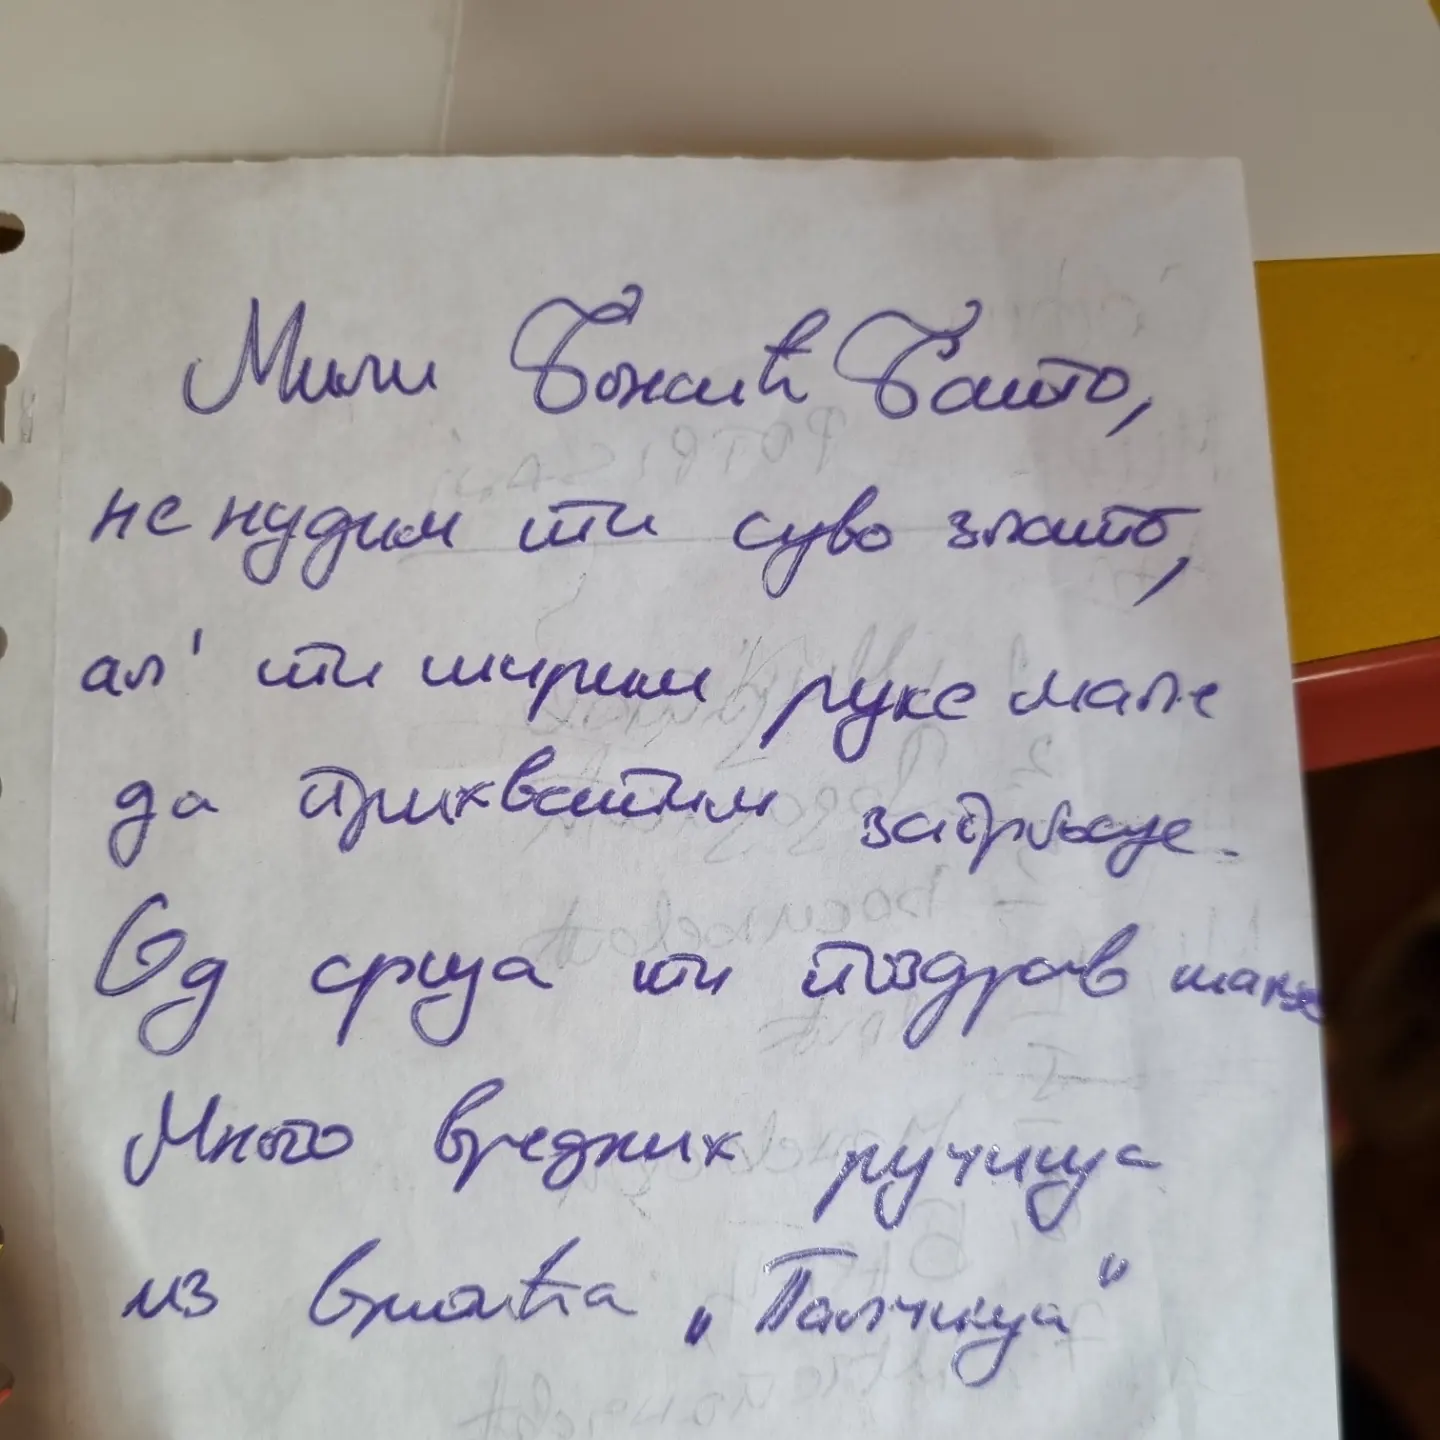 Мили Божић Бато,
не нудим ти суво злато,
ал' ти ширим руке мале
да прихватим загрљаје.
Од срца ти поздрав шаље
Много вредних ручица
из вртића „Палчица"